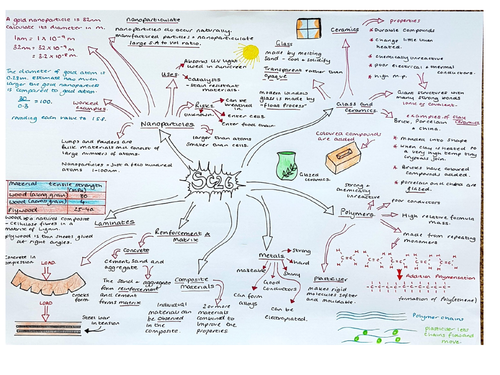 A gold nanoparticle is 32nm
calculate its diameter in m.
1nm = 1 x 10⁻⁹ m
32nm = 32 x 10⁻⁹ m
= 3.2 x 10⁻⁸ m
The diameter of gold atom is
larger the gold nanoparticle
is compared to gold atom.
= 100.
Worked
examples
Nanoparticulate
nanoparticles do occur naturally
manufactured products = nanoparticulate
large SA to vol ratio.
Uses
Absorb UV light
used in sunscreen
Catalysts
Risks
Can be breathed
in
unknown
Enter cells
Enter food chain
Nanoparticles
larger than atoms
smaller than cells.
Lumps and powders are
bulk materials and consist of
large numbers of atoms.
Nanoparticles = just a few hundred
atoms 1-100nm.
Glass
made by melting
sand - cool + solidify
Transparent rather than
opaque
modern window
glass is made by
"float process"
Ceramics
properties
Durable compounds
Change little when
heated.
chemically unreactive
poor electrical + thermal
conductors.
high m.p.
Glass and
Ceramics
Giant structures with
many strong bonds
ionic or covalent.
Examples of clay
Ceramics
Brick,
+ china.
Coloured compounds
are added
Glazed
ceramics.
Mould into shape
when clay is heated to
a very high temp tiny
crystals join
Bricks have coloured
compounds added
porcelain and china are
glazed.
SC26
Material
tensile strength
Wood (along grain)
Wood (across grain)
Plywood
Wood is a natural composite
- cellulose fibres in a
matrix of lignin.
plywood is thin sheets glued
at right angles.
Laminates
Concrete in
compression
LOAD
LOAD
Steel bar
in tension
Reinforcement &
Matrix
Concrete
Cement, sand and
aggregate
The sand + aggregate
form reinforcement
and cement
forms matrix
Composite
materials
Individual
materials can
be observed
in the
composite
2 or more
materials
combined to
improve the
properties
Metals
Strong
hard
shiny
malleable
Good
conductors
Can form
alloys
Can be
electroplated.
Polymers
strong +
chemically
unreactive
Poor conductors
High relative formula
mass.
made from repeating
monomers
Addition Polymerisation
formation of Poly(ethene)
Plasticiser
makes rigid
molecules softer
and mouldable
Polymer chains
plasticiser lets
chains
move.